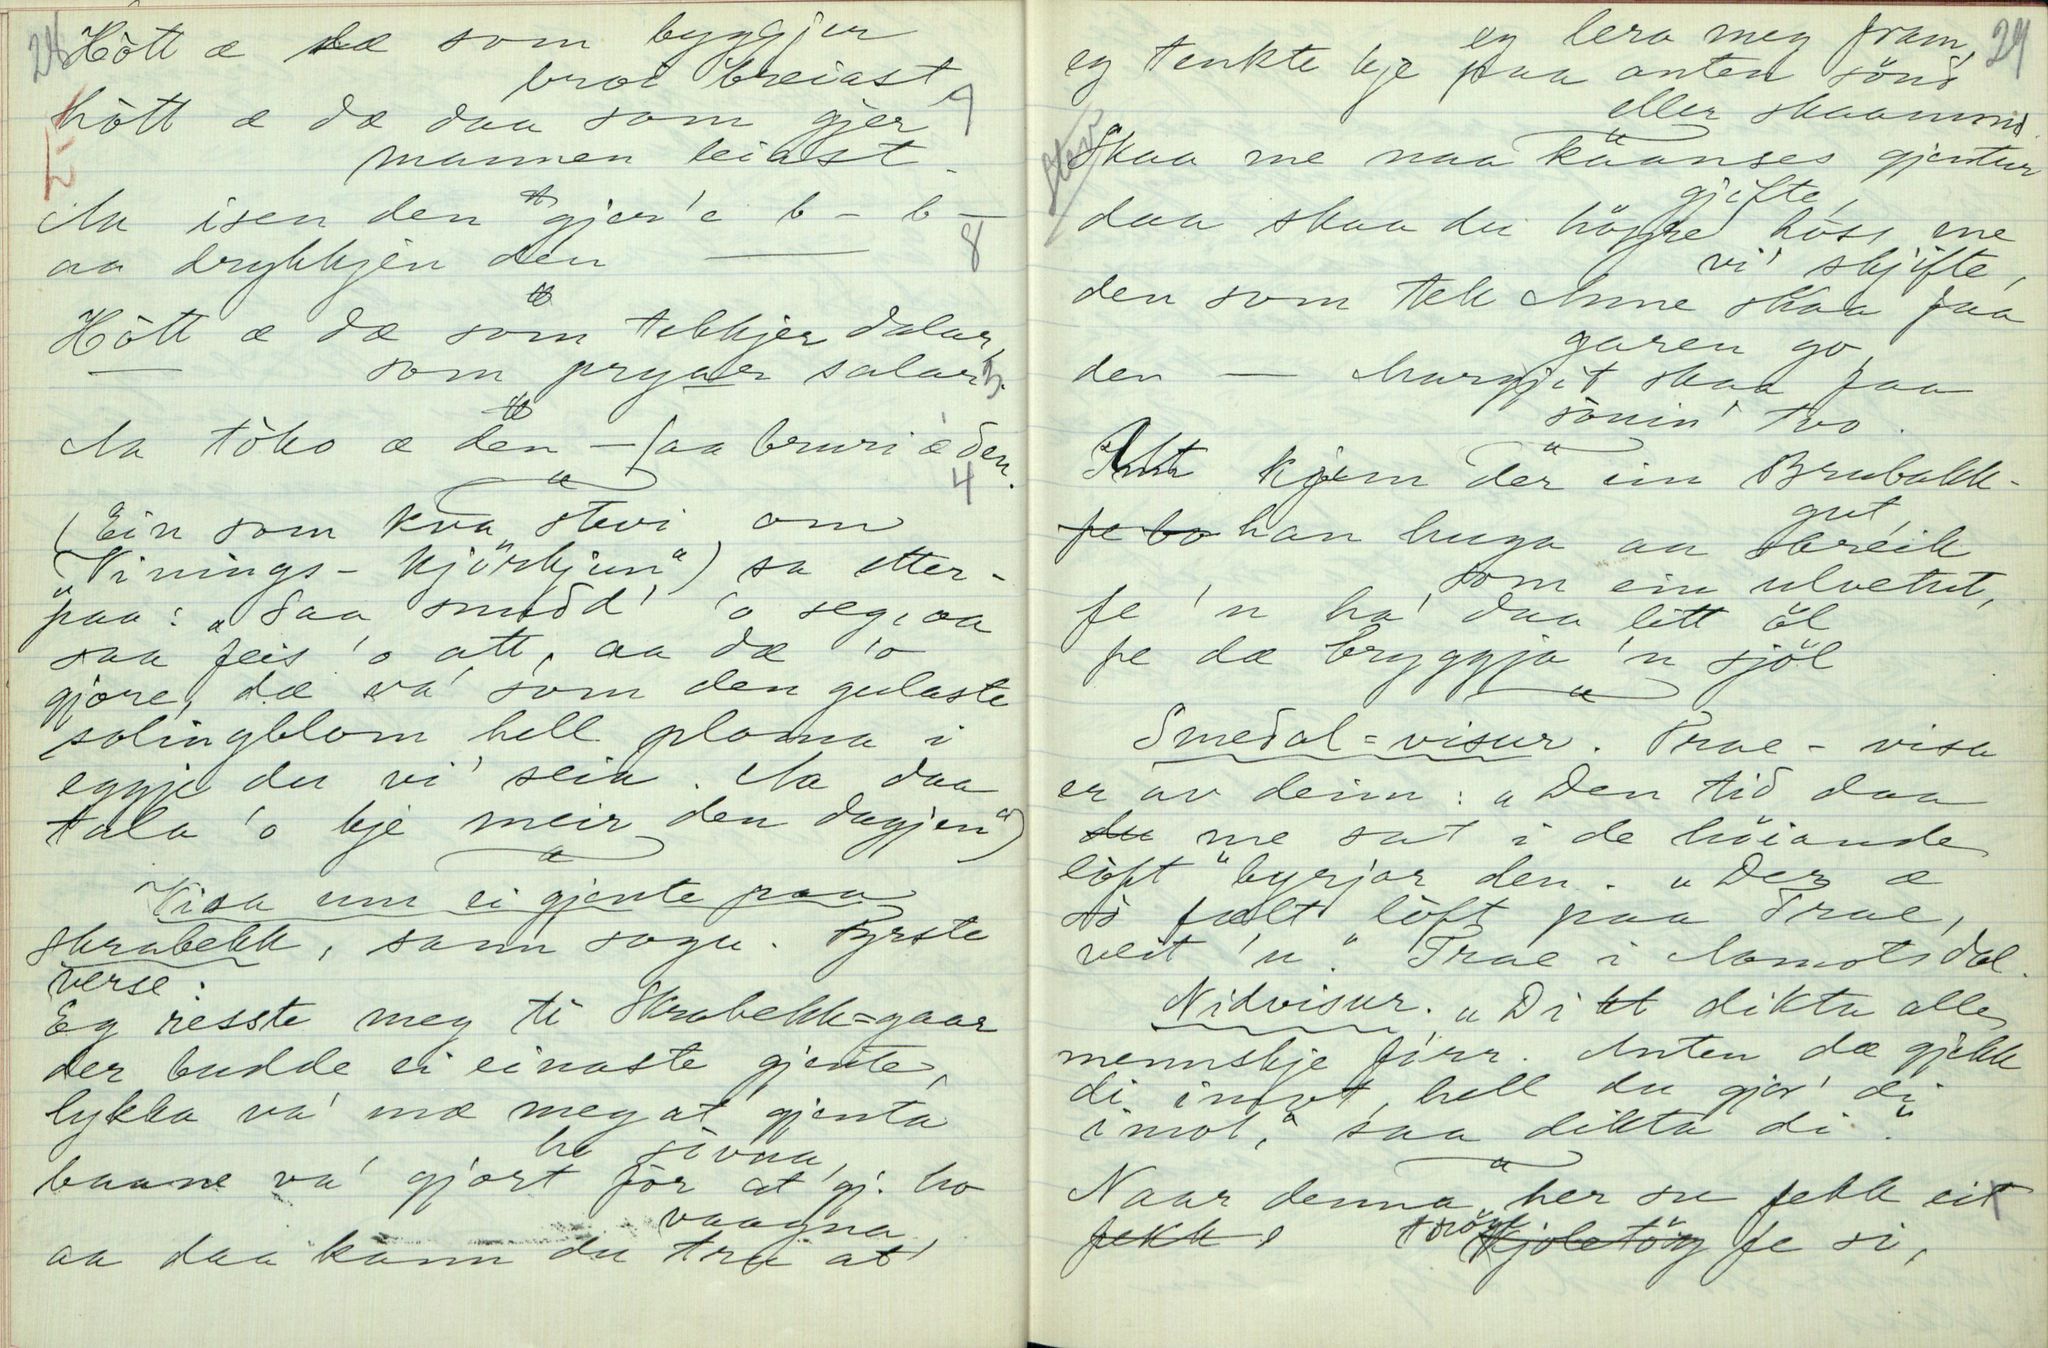 28
Hòtt æ dæ som byggjer
broi breiast, 7
hòtt æ dæ daa som gjer
mannen leiast.
Aa isen den gjer'e b – b –
8
aa drykkjen den ———
Hòtt æ dæ som tekkjer dalar,
som pryar salar. 3
Aa tòko æ den – saa bruri æ den.
4
(Ein som kva stevi om
"Vinings-kjörkjun") sa etter-
paa: "Saa snudd' 'o seg, aa
saa feis 'o att, aa dæ 'o
gjore, dæ va' som den gulaste
solingblom hell ploma i
eggje du vi' seia. Aa daa
tala 'o kje meir den dagjen")
Visa um ei gjente paa
Skrabekk, sann sogu. Fyrste
verse:
Eg resste meg ti Skrabekk=gaar
der budde ei einaste gjente,
lykka va' mæ meg at gjenta
he sòvna,
baane va' gjort för at gj. ho
vaagna
aa daa kann du tru at
29
eg lera meg fram,
eg tenkte kje paa anten sönd
eller skaamm.
Stev
Skaa me naa käanses gjentur
gjifte,
daa skaa du höggre höss me
vi' skjifte,
den som tek Anne skaa faa
garen go,
den — Margjit skaa faa
sònin' tvo.
Att kjem der ein Brubakk-
gut,
fe bo han huga aa skreik
som ein ulvetut,
fe 'n ha' daa litt öl
fe dæ bryggja 'n sjöl
Smedal=visur. Trae-visa
er av deim: "Den tid daa
du me sat i de höiande
löft" byrjar den. "Der æ
so fælt löft paa Trae,
veit 'n." Trae i Aamotsdal.
Nidvisur. "Di kt dikta alle
mennskje förr. Anten dæ gjekk
di imot, hell du gjor' di
imot, saa dikta di."
Naar denna her su fekk eit
fekk tröye kjoletöy fe si,